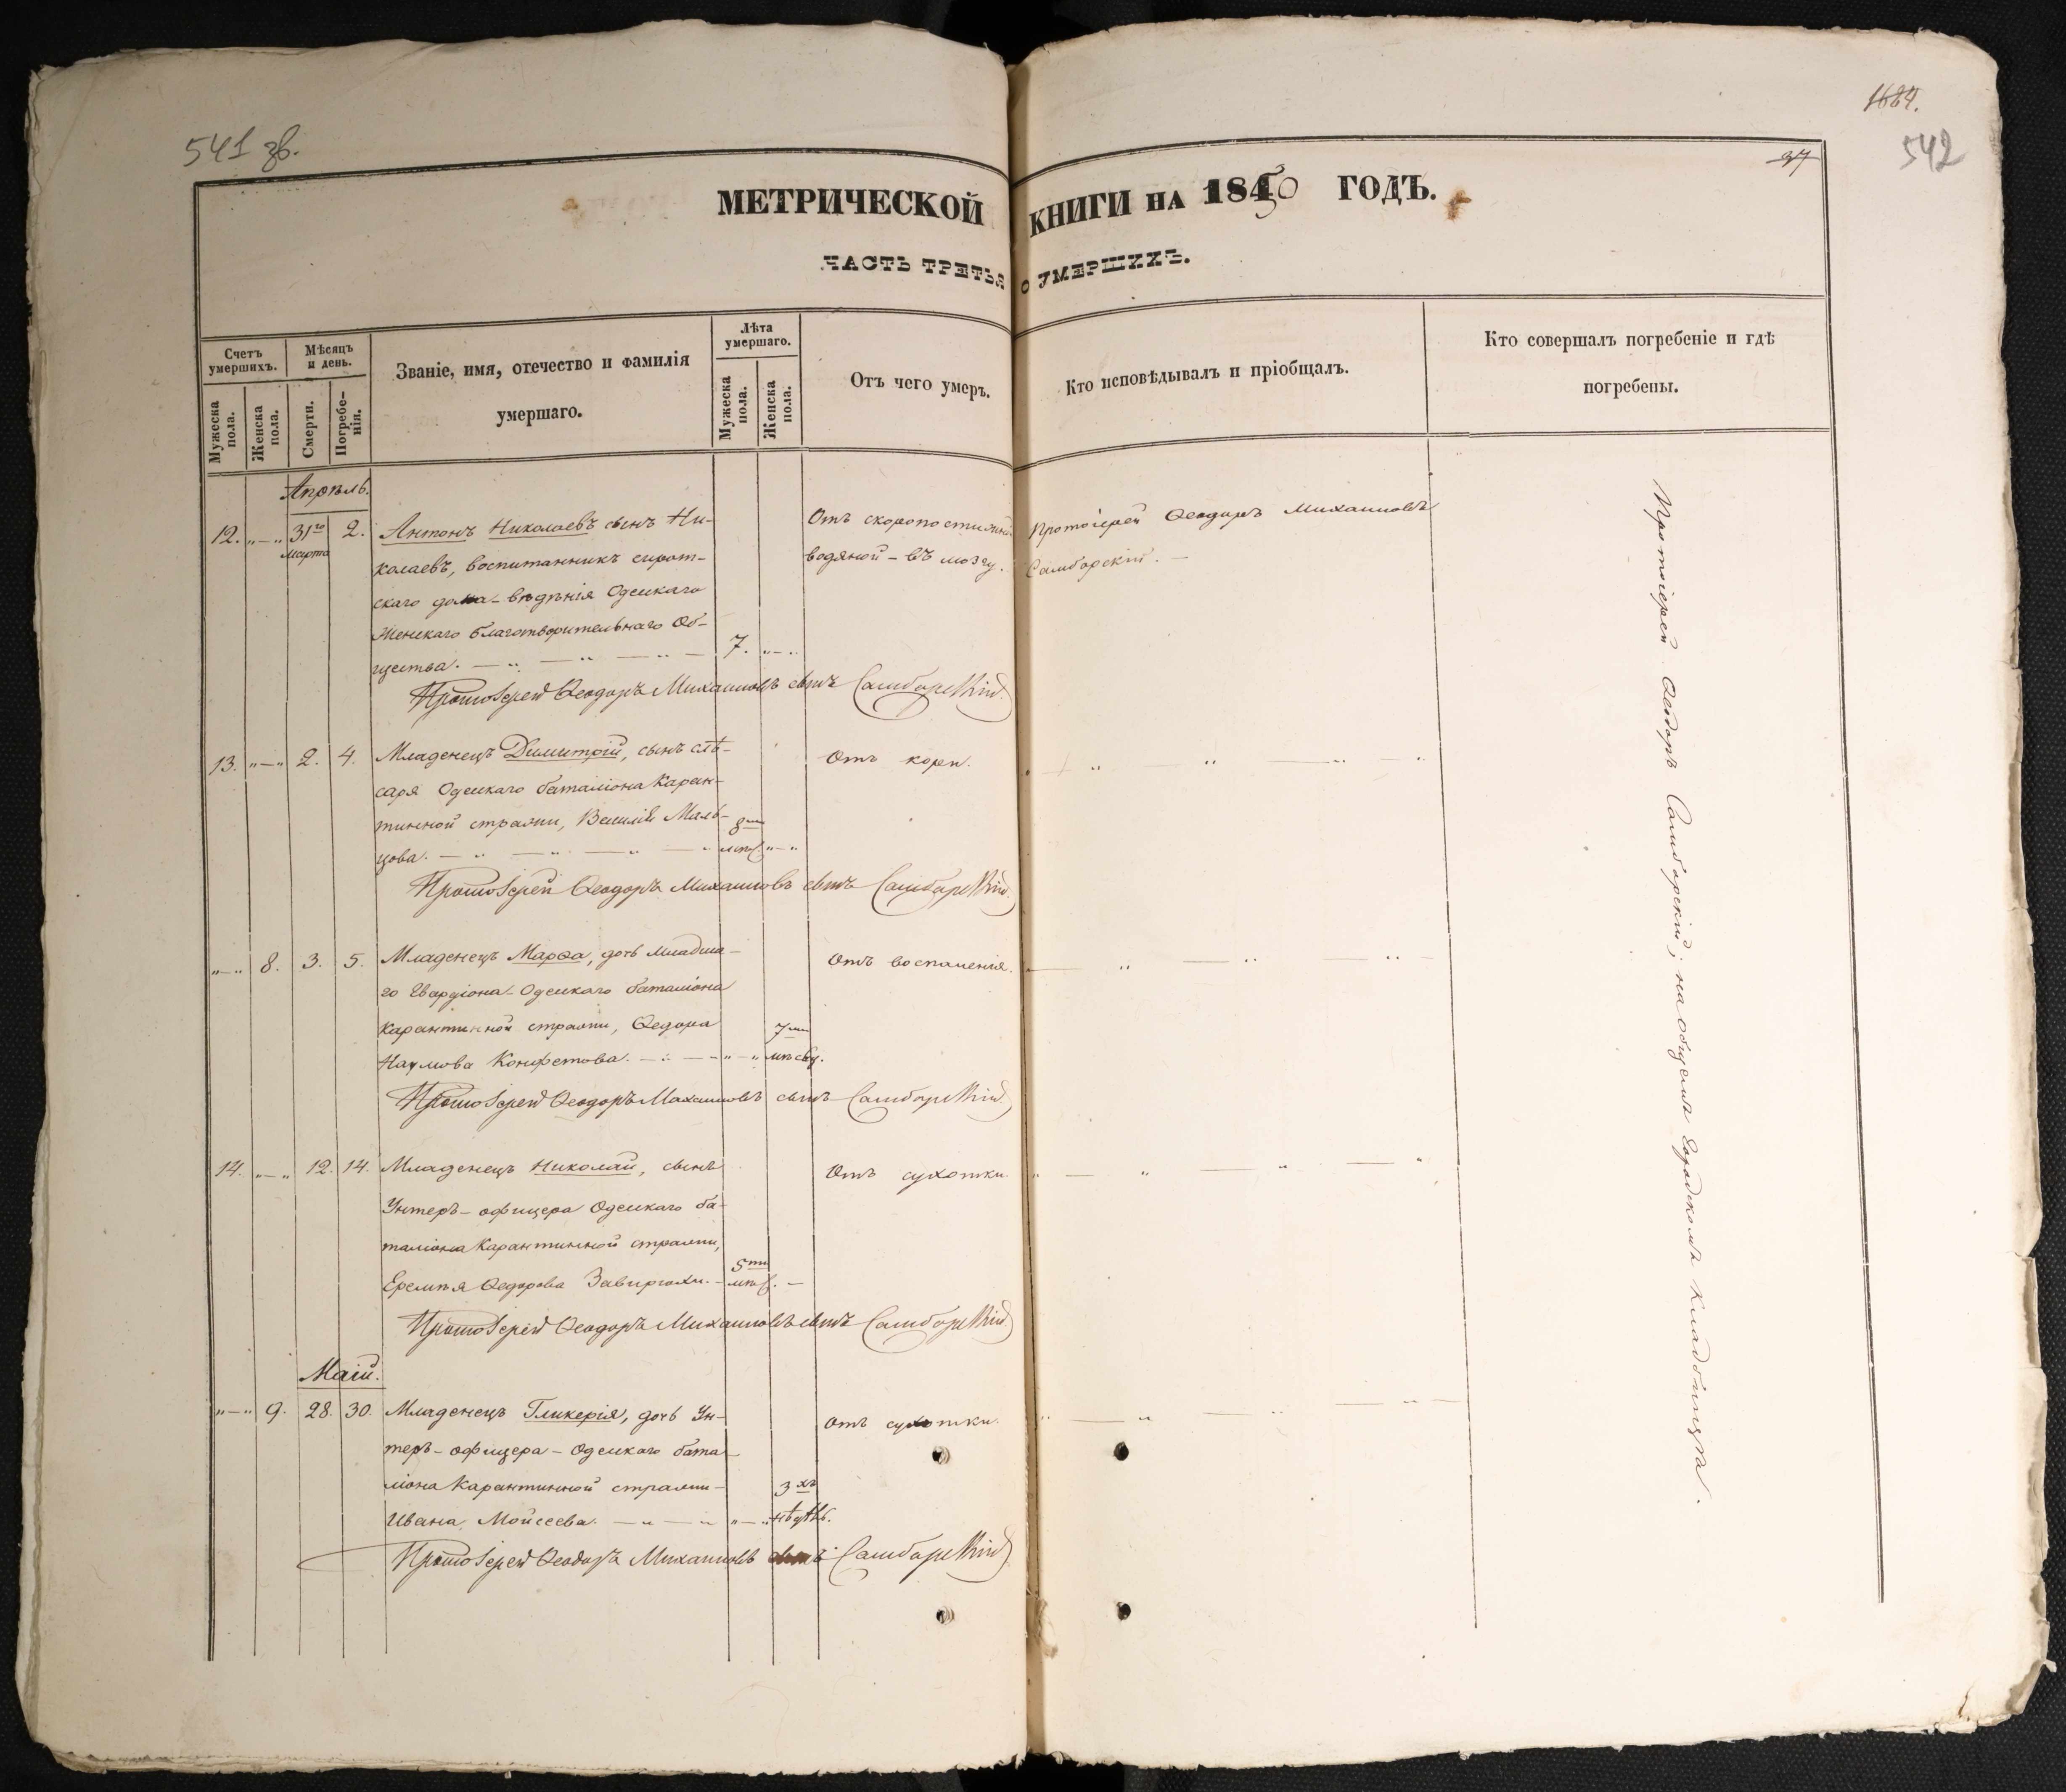 541 зв.
1684.
542
37
МЕТРИЧЕСКОЙ КНИГИ НА 1850 ГОДЪ.
ЧАСТЬ ТРЕТЬЯ О УМЕРШИХЪ.
Счетъ умершихъ.
Мѣсяцъ и день.
Званіе, имя, отечество и фамилія умершаго.
Лѣта умершаго.
Отъ чего умеръ.
Кто исповѣдывалъ и пріобщалъ.
Кто совершалъ погребеніе и гдѣ погребены.
Мужеска пола.
Женска пола.
Смерти.
Погребенія.
Мужеска пола.
Женска пола.
Апрѣль.
12. „—„ 31го Марта 2. Антонъ Николаевъ сынъ Ни-
колаевъ, воспитанникъ сирот-
скаго дома – вѣдѣнія Одескаго
Женскаго благотворительнаго Об-
щества. — „ — „ — „ — 7. „—„
Отъ скоропостижной
водяной – въ мозгу.
Протоіерей Ѳеодоръ Михаиловъ
Самборскій. —
Протоіерей Ѳеодоръ Михаиловъ сынъ Самборскій
13. „—„ 2. 4. Младенецъ Димитрій, сынъ слѣ-
саря Одескаго баталіона Каран-
тинной стражи, Василія Маль-
цова. — „ — „ — „ — „ 8ми мѣс. „—„
Отъ кори.
Протоіерей Ѳеодоръ Михаиловъ сынъ Самборскій
„—„ 8. 3. 5. Младенецъ Марѳа, дочь младша-
го Гвардіона – Одескаго баталіона
Карантинной стражи, Ѳедора
Наумова Конфетова. — „ — „ — „ 7ми мѣсяц.
Отъ воспаленія.
Протоіерей Ѳеодоръ Михаиловъ сынъ Самборскій
14. „—„ 12. 14. Младенецъ Николай, сынъ
Унтеръ – офицера Одескаго ба-
таліона Карантинной стражи,
Еремѣя Ѳедорова Завиргохи. – 5ти мѣс. —
Отъ сухотки.
Протоіерей Ѳеодоръ Михаиловъ сынъ Самборскій
Маій.
„—„ 9. 28. 30. Младенецъ Гликерія, дочь Ун-
теръ – офицера – Одескаго бата-
ліона Карантинной стражи –
Ивана Мойсеева. — „ — „ „—„ 3хъ нѣдѣль.
Отъ сухотки.
Протоіерей Ѳеодоръ Михаиловъ сынъ Самборскій
Протоіерей Ѳеодоръ Самборскій; на общемъ Городскомъ кладбищѣ.